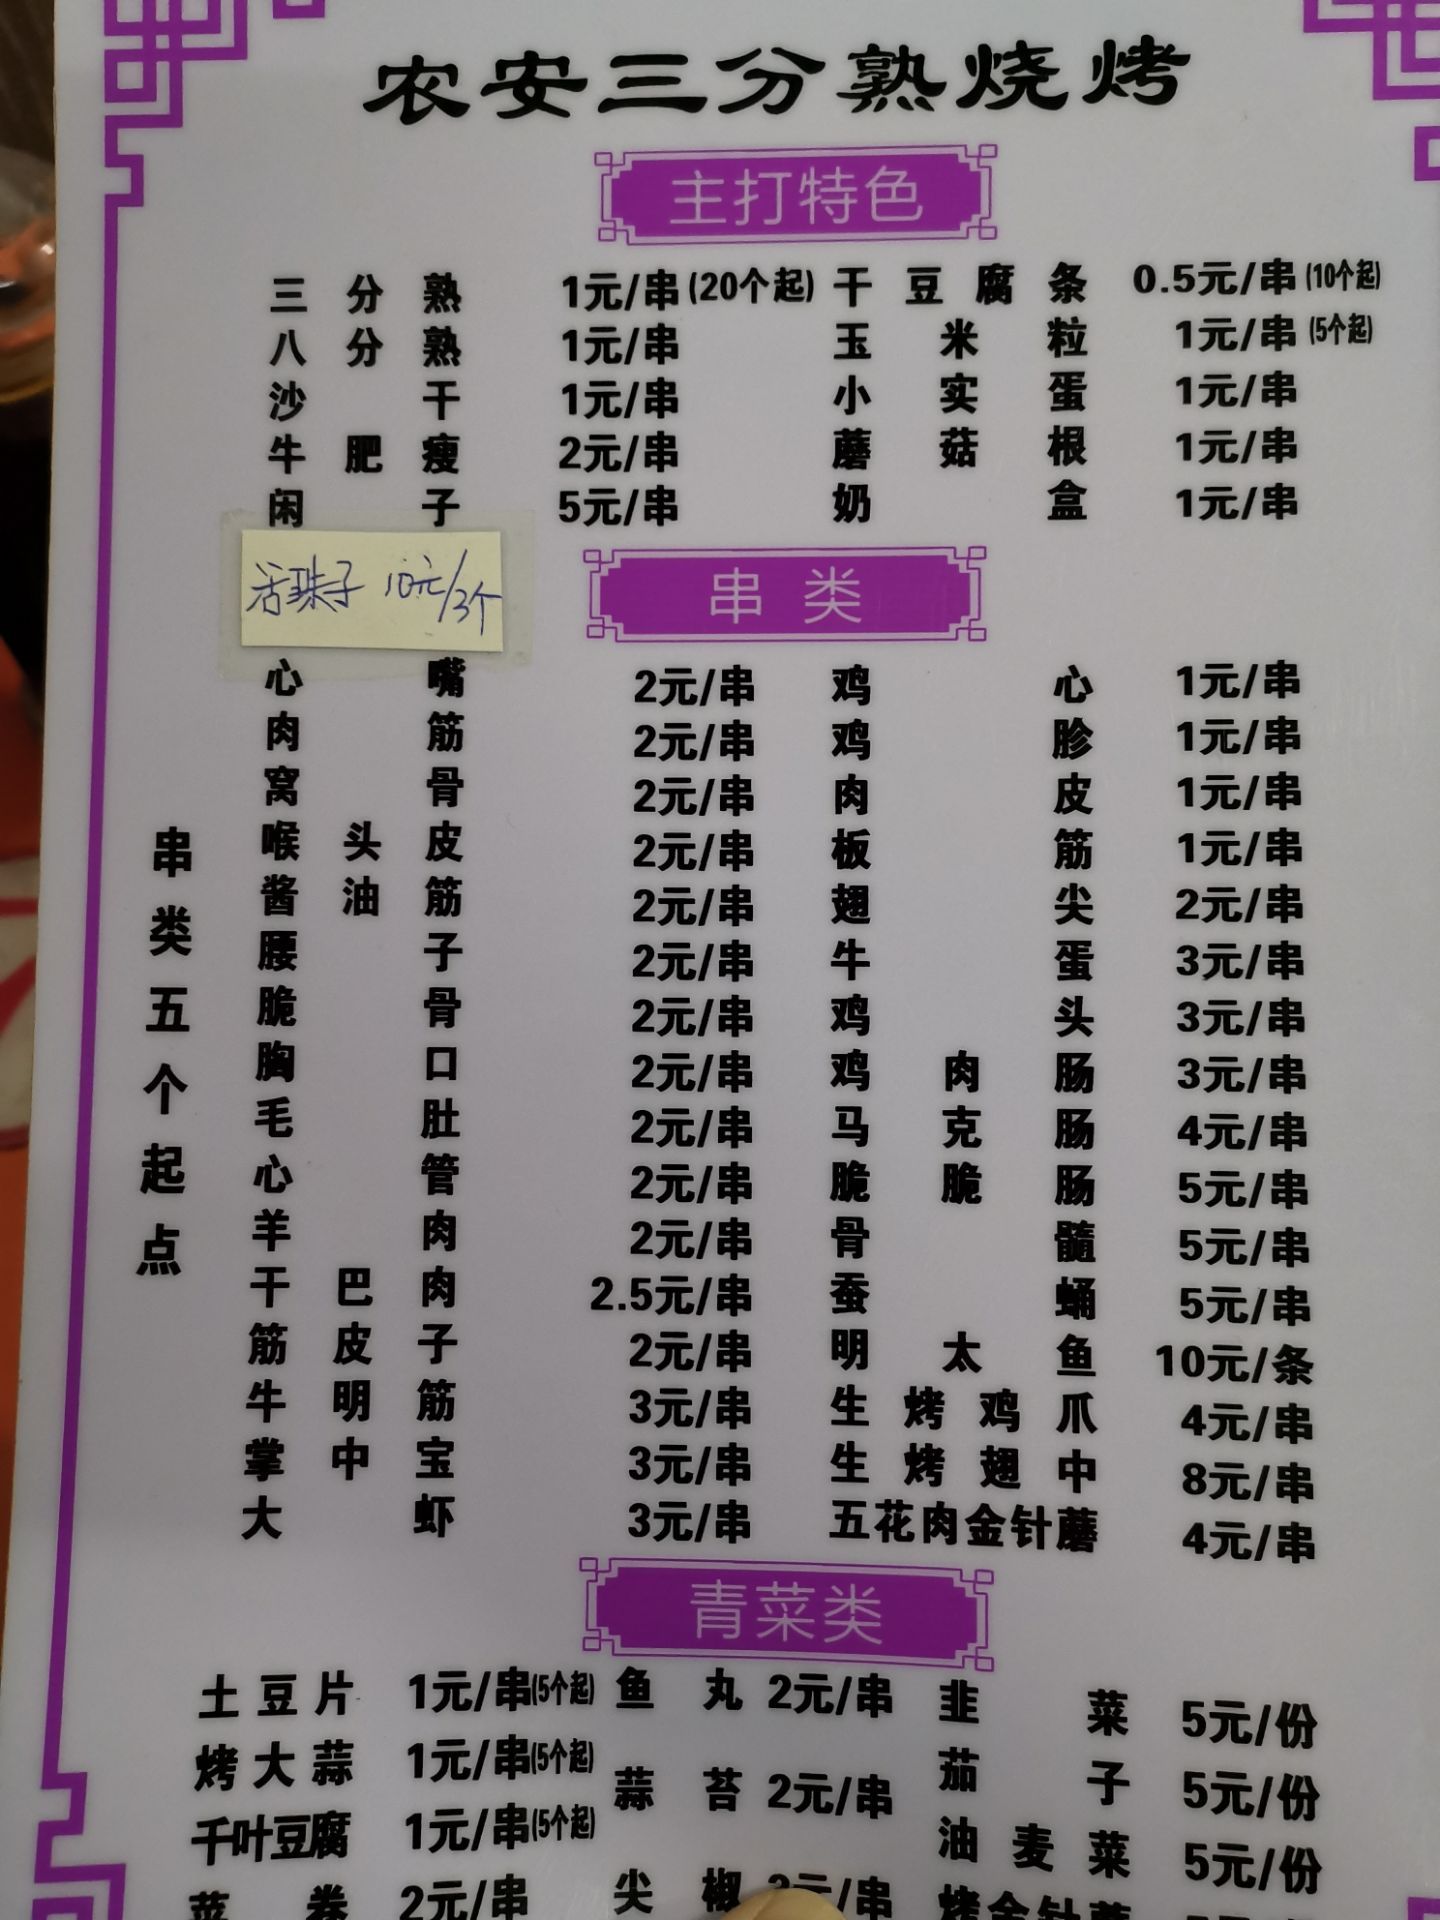 农安三分熟烧烤
主打特色
三分熟 1元/串(20个起) 干豆腐条 0.5元/串(10个起)
八分熟 1元/串 玉米粒 1元/串(5个起)
沙干 1元/串 小实蛋 1元/串
牛肥瘦 2元/串 蘑菇根 1元/串
闲子 5元/串 奶盒 1元/串
活珠子 10元/3个
串类
串类五个起点
心嘴 2元/串 鸡心 1元/串
肉筋 2元/串 鸡胗 1元/串
窝骨 2元/串 肉皮 1元/串
喉头皮 2元/串 板筋 1元/串
酱油筋 2元/串 翅尖 2元/串
腰子 2元/串 牛蛋 3元/串
脆骨 2元/串 鸡头 3元/串
胸口 2元/串 鸡肉肠 3元/串
毛肚 2元/串 马克肠 4元/串
心管 2元/串 脆脆肠 5元/串
羊肉 2元/串 骨髓 5元/串
干巴肉 2.5元/串 蚕蛹 5元/串
筋皮子 2元/串 明太鱼 10元/条
牛明筋 3元/串 生烤鸡爪 4元/串
掌中宝 3元/串 生烤翅中 8元/串
大虾 3元/串 五花肉金针蘑 4元/串
青菜类
土豆片 1元/串(5个起) 鱼丸 2元/串 韭菜 5元/份
烤大蒜 1元/串(5个起) 蒜苔 2元/串 茄子 5元/份
千叶豆腐 1元/串(5个起) 油麦菜 5元/份
菜卷 2元/串 尖椒 元/串 烤金针蘑